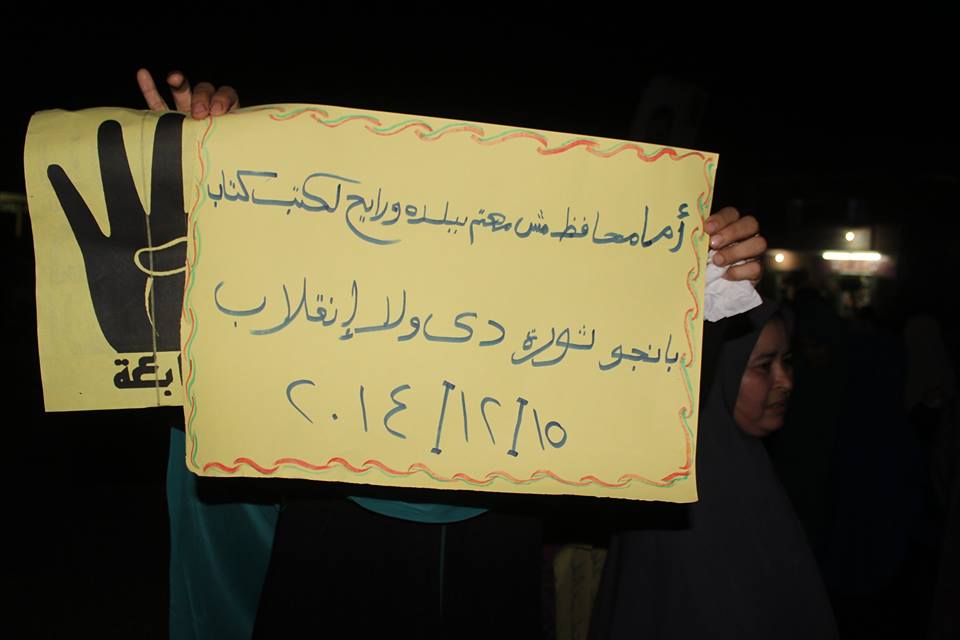 أما محافظ مش مهتم ببلده ورايح لكتب كتاب
بانجو ثورة دى ولا إنقلاب
٢٠١٤/١٢/١٥
ابعة